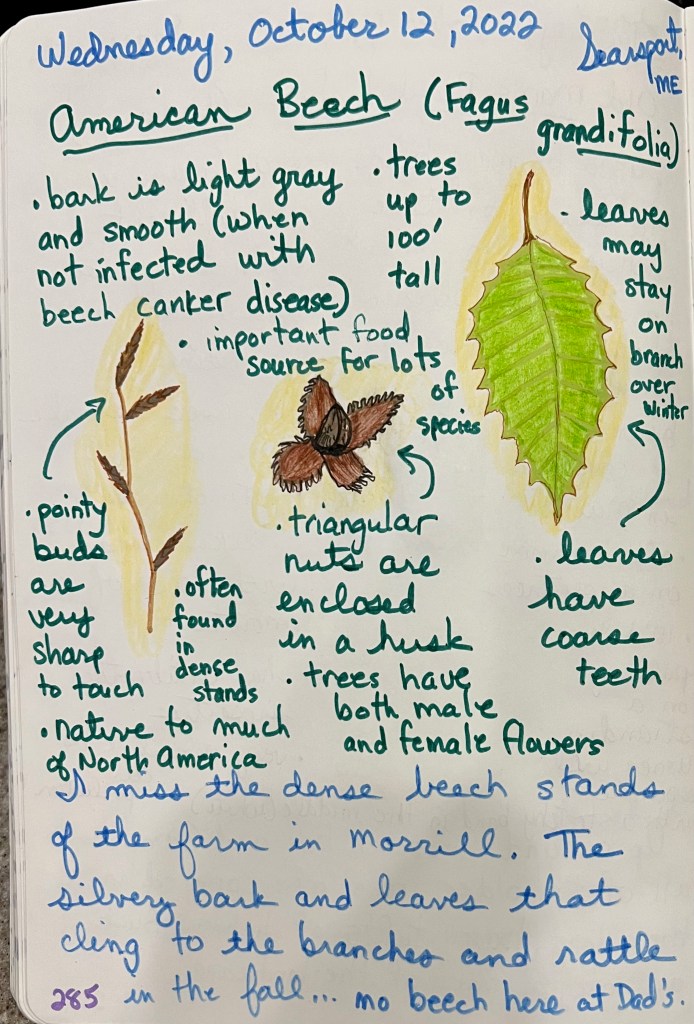 Wednesday, October 12, 2022
Searsport,
ME
American Beech (Fagus
grandifolia)
• bark is light gray
and smooth (when
not infected with
beech canker disease)
• trees
up to
100'
tall
• leaves
may
stay
on
branch
over
winter
• important food
source for lots
of
species
• pointy
buds
are
very
sharp
to touch
• often
found
in
dense
stands
• triangular
nuts are
enclosed
in a husk
• leaves
have
coarse
teeth
• trees have
both male
and female flowers
• native to much
of North America
I miss the dense beech stands
of the farm in Morrill. The
silvery bark and leaves that
cling to the branches and rattle
in the fall... no beech here at Dad's.
285